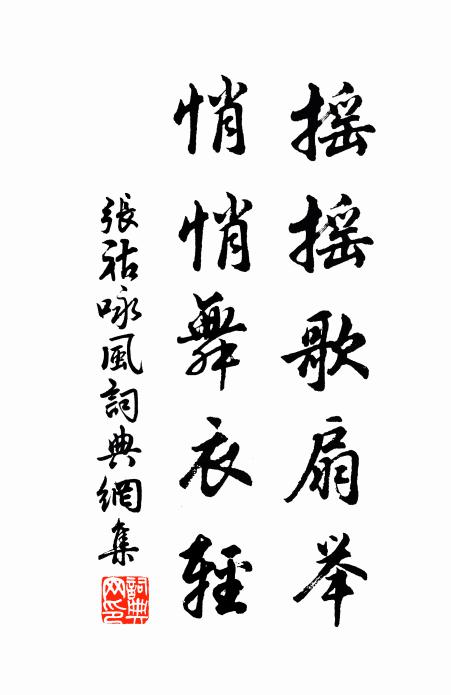 摇摇歌扇举
悄悄舞衣輕
張祜咏風詞典網集
詞典